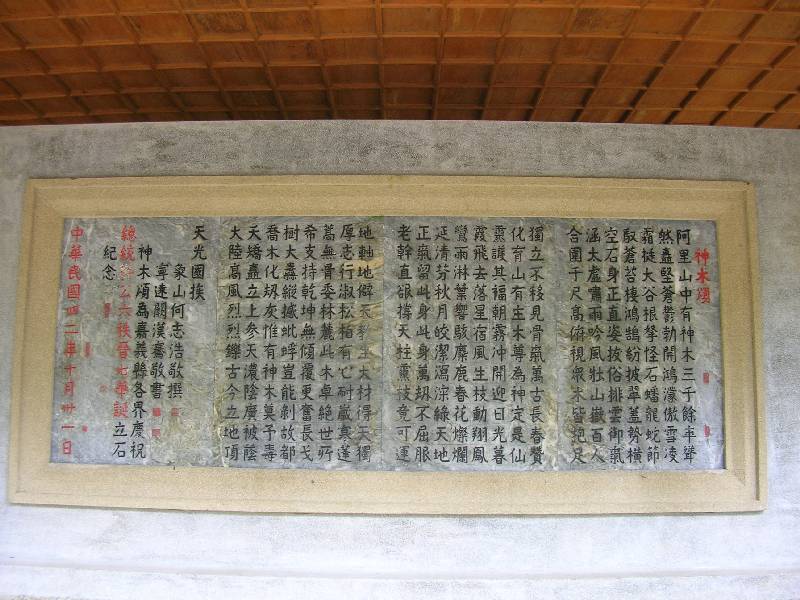 神木頌
阿里山中有神木三千餘年聳
然矗堅蒼鬱勃開鴻濛傲雪凌
霜挺大谷根拏怪石蟠龍蛇節
馭蒼苔棲鴻鵠紛披翠蓋勢橫
空石身正直姿拔俗排雲御氣
涵太虛嘯雨吟風壯山嶽百人
合圍千尺高俯視眾木皆挹足
獨立不移見骨氣萬古長春贊
化育山有主木尊為神定是仙
靈護其福朝霧沖開迎日光暮
霞飛去落星宿風生枝動翔鳳
鸞雨淋葉響駭麋鹿春花燦爛
延清芬秋月皎潔瀉淙綠天地
正氣留此身此身萬刼不屈服
老幹直欲撐天柱靈枝竟可運
地軸地僻天教生大材得天獨
厚志行淑松柏有心耐歲寒蓬
蒿無骨委林麓此木卓絕世所
希支持乾坤無傾覆更奮長戈
樹大纛縱橫蚍蜉豈能剝故都
喬木化刼灰惟有神木莫予毒
夭矯矗立上參天濃陰廣被蔭
大陸高風烈烈鑠古今立地頂
天光國族
象山何志浩敬撰
寧遠闞漢騫敬書
神木頌為嘉義縣各界慶祝
總統蔣公六秩晉七華誕立石
紀念
中華民國四二年十月卅一日